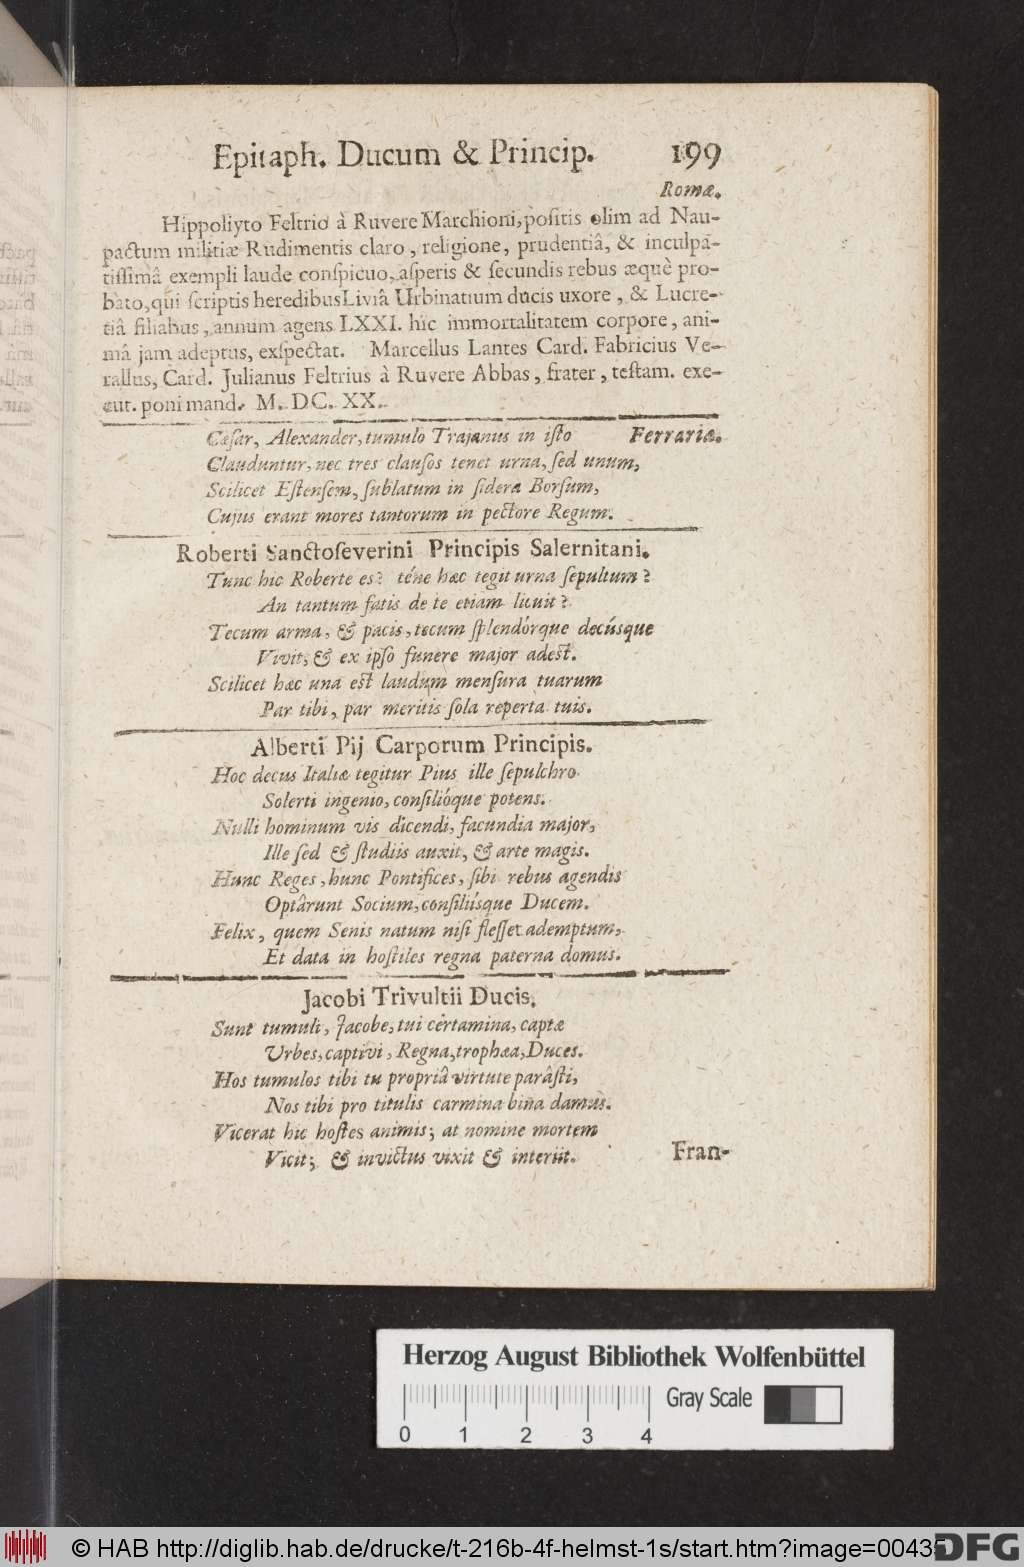 Epitaph. Ducum & Princip. 199
Romæ.
Hippoliyto Feltrio à Ruvere Marchioni, poſitis olim ad Nau-
pactum militiæ Rudimentis claro, religione, prudentiâ, & inculpa-
tiſſimâ exempli laude conſpicuo, aſperis & ſecundis rebus æquè pro-
bato, qui ſcriptis heredibus Liviâ Urbinatium ducis uxore, & Lucre-
tiâ filiabus, annum agens LXXI. hic immortalitatem corpore, ani-
mâ jam adeptus, exſpectat. Marcellus Lantes Card. Fabricius Ve-
rallus, Card. Julianus Feltrius à Ruvere Abbas, frater, teſtam. exe-
cut. poni mand. M. DC. XX.
Cæſar, Alexander, tumulo Trajanus in iſto Ferrariæ.
Clauduntur, nec tres clauſos tenet urna, ſed unum,
Scilicet Eſtenſem, ſublatum in ſidera Borſum,
Cujus erant mores tantorum in pectore Regum.
Roberti Sanctoſeverini Principis Salernitani.
Tunc hic Roberte es? téne hæc tegit urna ſepultum?
An tantum fatis de te etiam licuit?
Tecum arma, & pacis, tecum ſplendórque decúsque
Vivit, & ex ipſo funere major adeſt.
Scilicet hæc una eſt laudum menſura tuarum
Par tibi, par meritis ſola reperta tuis.
Alberti Pij Carporum Principis.
Hoc decus Italiæ tegitur Pius ille ſepulchro
Solerti ingenio, conſilióque potens.
Nulli hominum vis dicendi, facundia major,
Ille ſed & ſtudiis auxit, & arte magis.
Hunc Reges, hunc Pontifices, ſibi rebus agendis
Optârunt Socium, conſiliísque Ducem.
Felix, quem Senis natum niſi fleſſet ademptum,
Et data in hoſtiles regna paterna domus.
Jacobi Trivultii Ducis.
Sunt tumuli, Jacobe, tui certamina, captæ
Urbes, captivi, Regna, trophæa, Duces.
Hos tumulos tibi tu propriâ virtute parâſti,
Nos tibi pro titulis carmina bina damus.
Vicerat hic hoſtes animis; at nomine mortem
Vicit; & invictus vixit & interiit.
Fran-
Herzog August Bibliothek Wolfenbüttel
Gray Scale
0 1 2 3 4
© HAB http://diglib.hab.de/drucke/t-216b-4f-helmst-1s/start.htm?image=00435
DFG